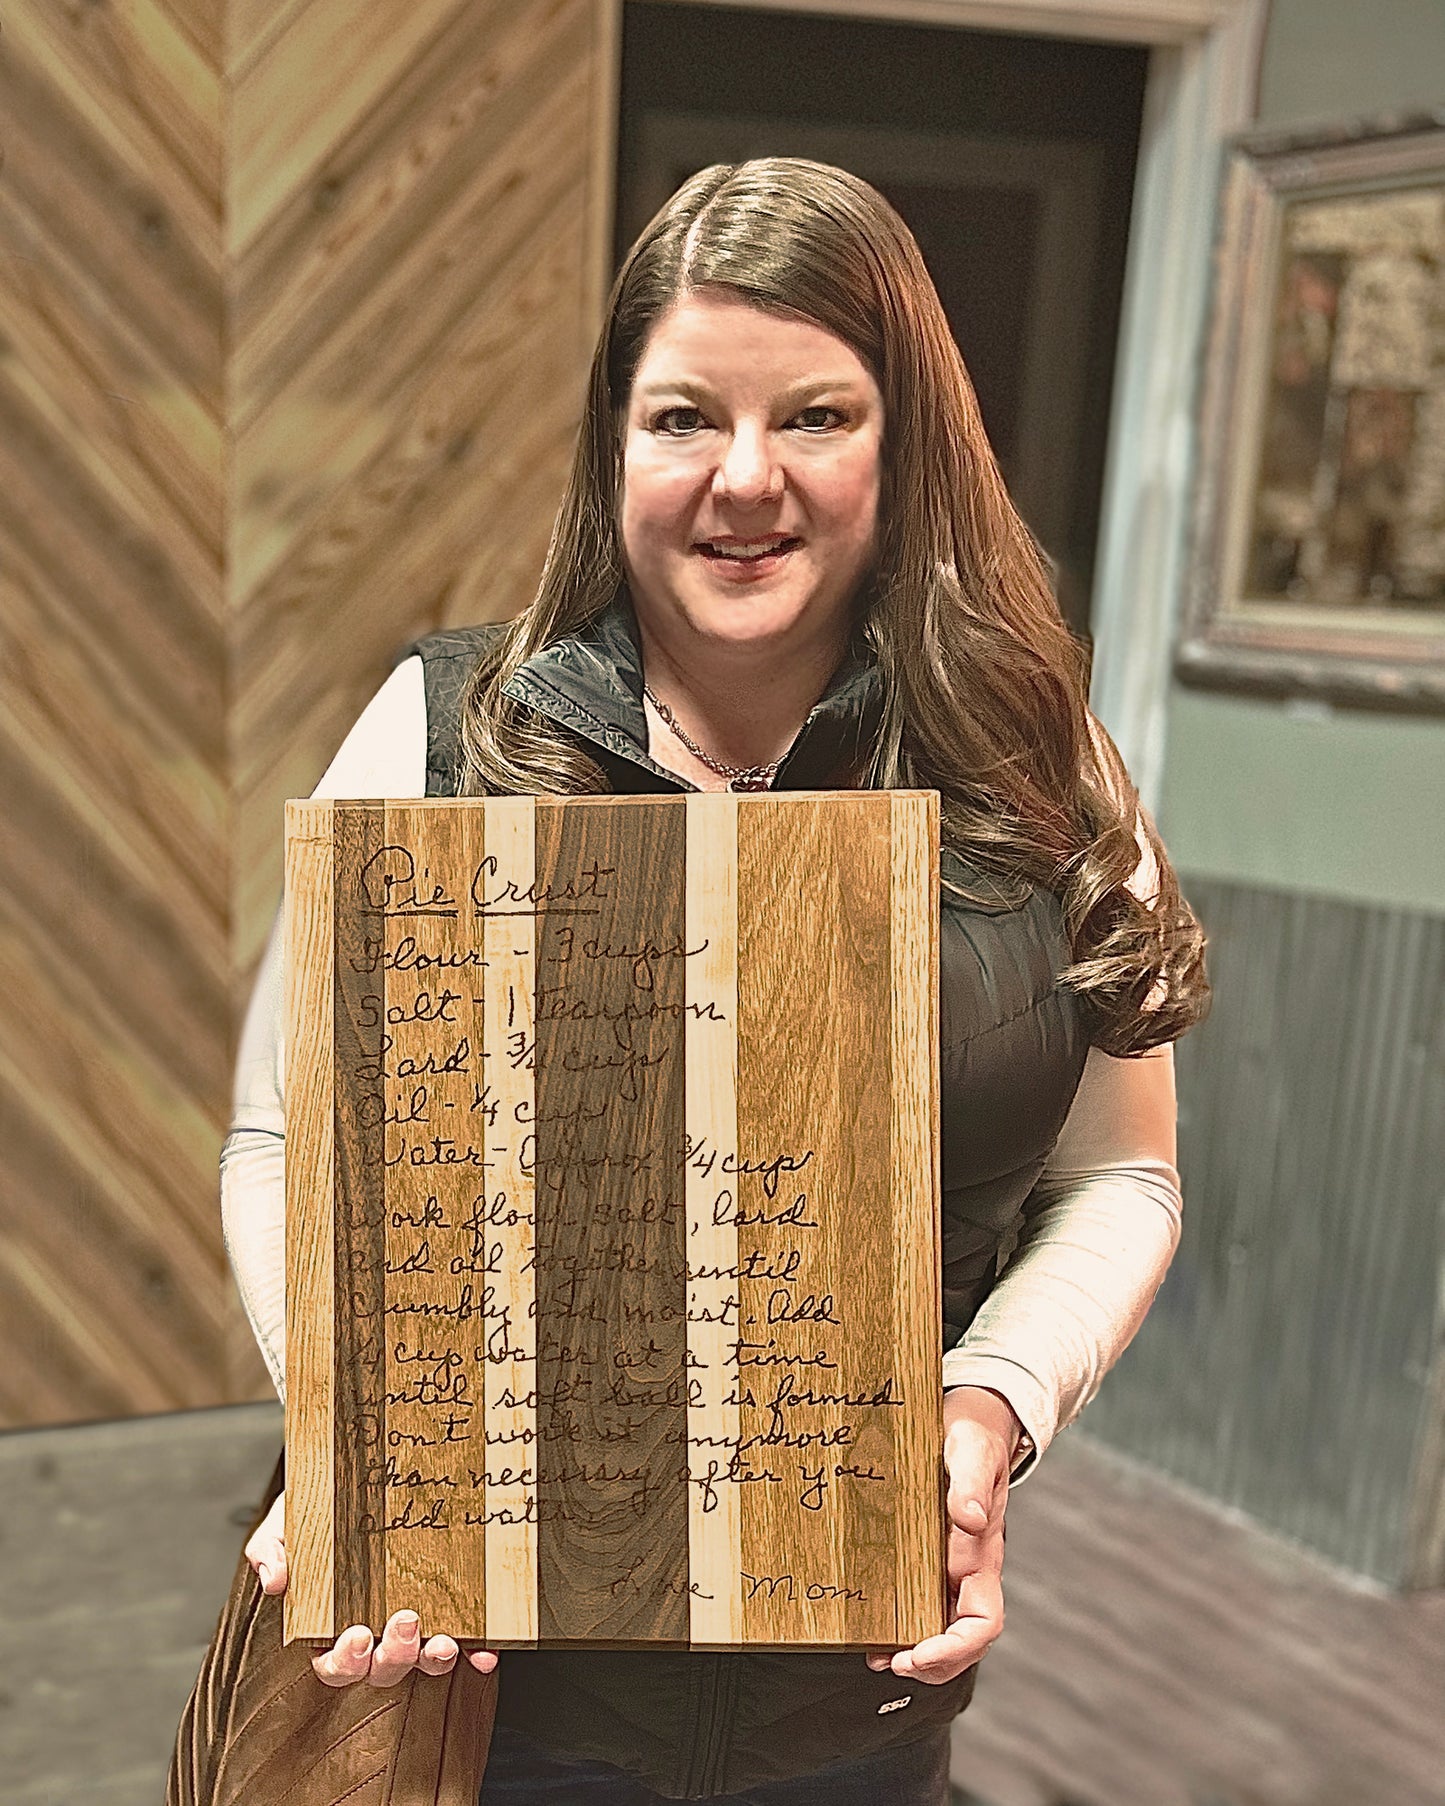 Pie Crust
Flour - 3 cups
Salt - 1 Teaspoon
Lard - 3/4 cup
Oil - 1/4 cup
Water - Approx 3/4 cup
Work flour, salt, lard
and oil together until
crumbly and moist. Add
1/4 cup water at a time
until soft ball is formed
Don't work it anymore
than necessary after you
add water.
Love Mom